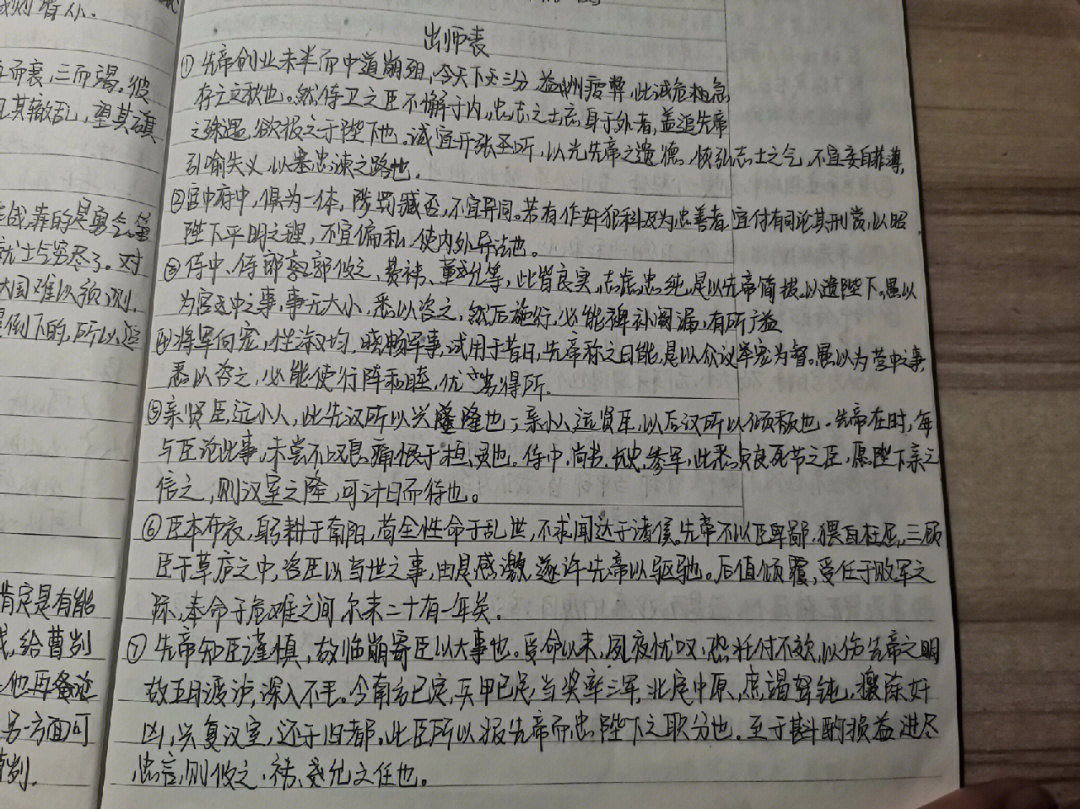 再而衰,三而竭。彼
其辙乱,望其旗
战靠的是勇气
士气穷尽了。对
大国难以预测,
倒下的,所以追
肯定是有能
给曹刿
他再
另方面可
刿.
出师表
① 先帝创业未半而中道崩殂,今天下三分,益州疲弊,此诚危急
存亡之秋也。然侍卫之臣不懈于内,忠志之士忘身于外者,盖追先帝
之殊遇,欲报之于陛下也。诚宜开张圣听,以光先帝之遗德,恢弘志士之气,不宜妄自菲薄,
引喻失义,以塞忠谏之路也.
②宫中府中,俱为一体,陟罚臧否,不宜异同。若有作奸犯科及为忠善者,宜付有司论其刑赏,以昭
陛下平明之理,不宜偏私,使内外异法也。
③侍中、侍郎郭攸之、费祎、董允等,此皆良实,志虑忠纯,是以先帝简拔以遗陛下,愚以
为宫中之事,事无大小,悉以咨之,然后施行,必能裨补阙漏,有所广益
④将军向宠,性淑均,晓畅军事,试用于昔日,先帝称之曰能,是以众议举宠为督。愚以为营中之事,
悉以咨之,必能使行阵和睦,优劣得所.
⑤亲贤臣,远小人,此先汉所以兴隆也;亲小人,远贤臣,以后汉所以倾颓也。先帝在时,每
与臣论此事,未尝不叹息痛恨于桓、灵也。侍中、尚书、长史、参军,此悉贞良死节之臣,愿陛下亲之
信之,则汉室之隆,可计日而待也。
⑥臣本布衣,躬耕于南阳,苟全性命于乱世,不求闻达于诸侯。先帝不以臣卑鄙,猥自枉屈,三顾
臣于草庐之中,咨臣以当世之事,由是感激,遂许先帝以驱驰。后值倾覆,受任于败军之
际,奉命于危难之间,尔来二十有一年矣.
⑦ 先帝知臣谨慎,故临崩寄臣以大事也。受命以来,夙夜忧叹,恐托付不效,以伤先帝之明
故五月渡泸,深入不毛。今南方已定,兵甲已足,当奖率三军,北定中原,庶竭驽钝,攘除奸
凶,兴复汉室,还于旧都。此臣所以报先帝而忠陛下之职分也。至于斟酌损益,进尽
忠言,则攸之、祎、允之任也。